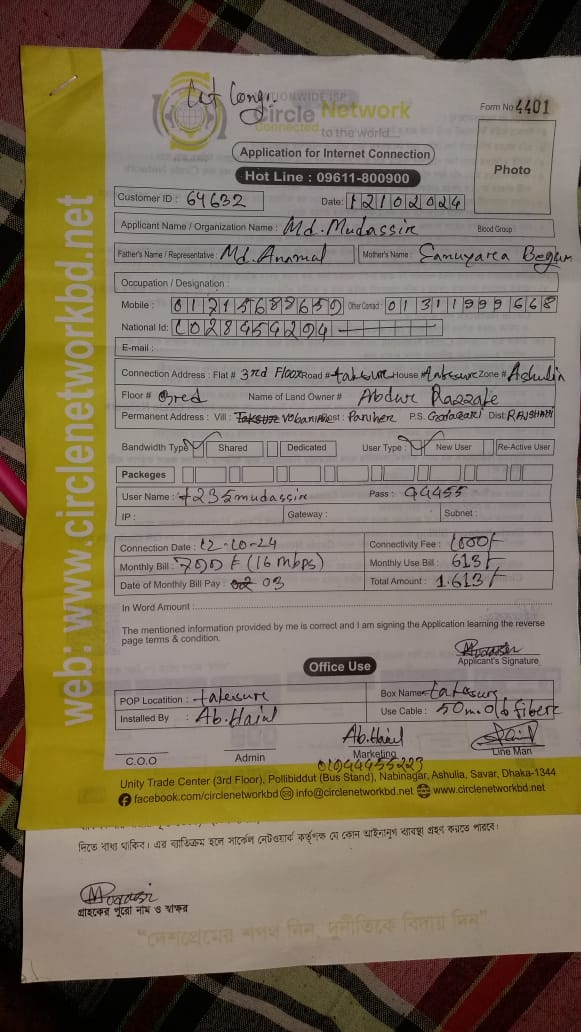 Circle Network
Connected to the world....
Form No 4401
Application for Internet Connection
Hot Line : 09611-800900
Photo
Customer ID : 64632 Date: 12102024
Applicant Name / Organization Name : Md. Mudassir Blood Group :
Father's Name / Representative : Mother's Name : Begum
Occupation / Designation :
Mobile : Other Contact : 01311999668
National Id:
E-mail :
Connection Address : Flat # 3rd Floor Road # House # Zone # Ashulia
Floor # Name of Land Owner # Abdur Razzake
Permanent Address : Vill : Post : P.S. Dist: RAJSHAHI
Bandwidth Type Shared Dedicated User Type : New User Re-Active User
Packeges
User Name : Pass : 94455
IP : Gateway : Subnet :
Connection Date : 12-10-24 Connectivity Fee : 1000/-
Monthly Bill : (16 mbps) Monthly Use Bill : 613/-
Date of Monthly Bill Pay : 03 Total Amount : 1.613/-
In Word Amount :
The mentioned information provided by me is correct and I am signing the Application learning the reverse
page terms & condition.
Applicant's Signature
Office Use
POP Locatition : Box Name:
Installed By : Use Cable : 50m
C.O.O Admin Marketing Line Man
Unity Trade Center (3rd Floor), Pollibiddut (Bus Stand), Nabinagar, Ashulia, Savar, Dhaka-1344
facebook.com/circlenetworkbd info@circlenetworkbd.net www.circlenetworkbd.net
web: www.circlenetworkbd.net
দিতে বাধ্য থাকিব। এর ব্যতিক্রম হলে সার্কেল নেটওয়ার্ক কর্তৃপক্ষ যে কোন আইনানুগ ব্যবস্থা গ্রহণ করতে পারবে।
গ্রাহকের পুরো নাম ও স্বাক্ষর
“দেশপ্রেমের শপথ নিন, দুর্নীতিকে বিদায় দিন”